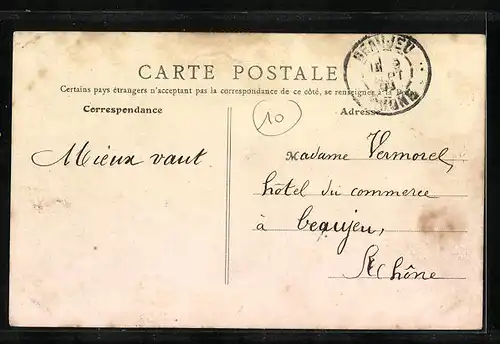 BEAUJEU
CARTE POSTALE
Certains pays étrangers n'acceptant pas la correspondance de ce côté, se renseigner à la
Correspondance
10
Adresse
Mieux vaut
Madame Vermorel,
hôtel du commerce
à beaujeu,
Rhône